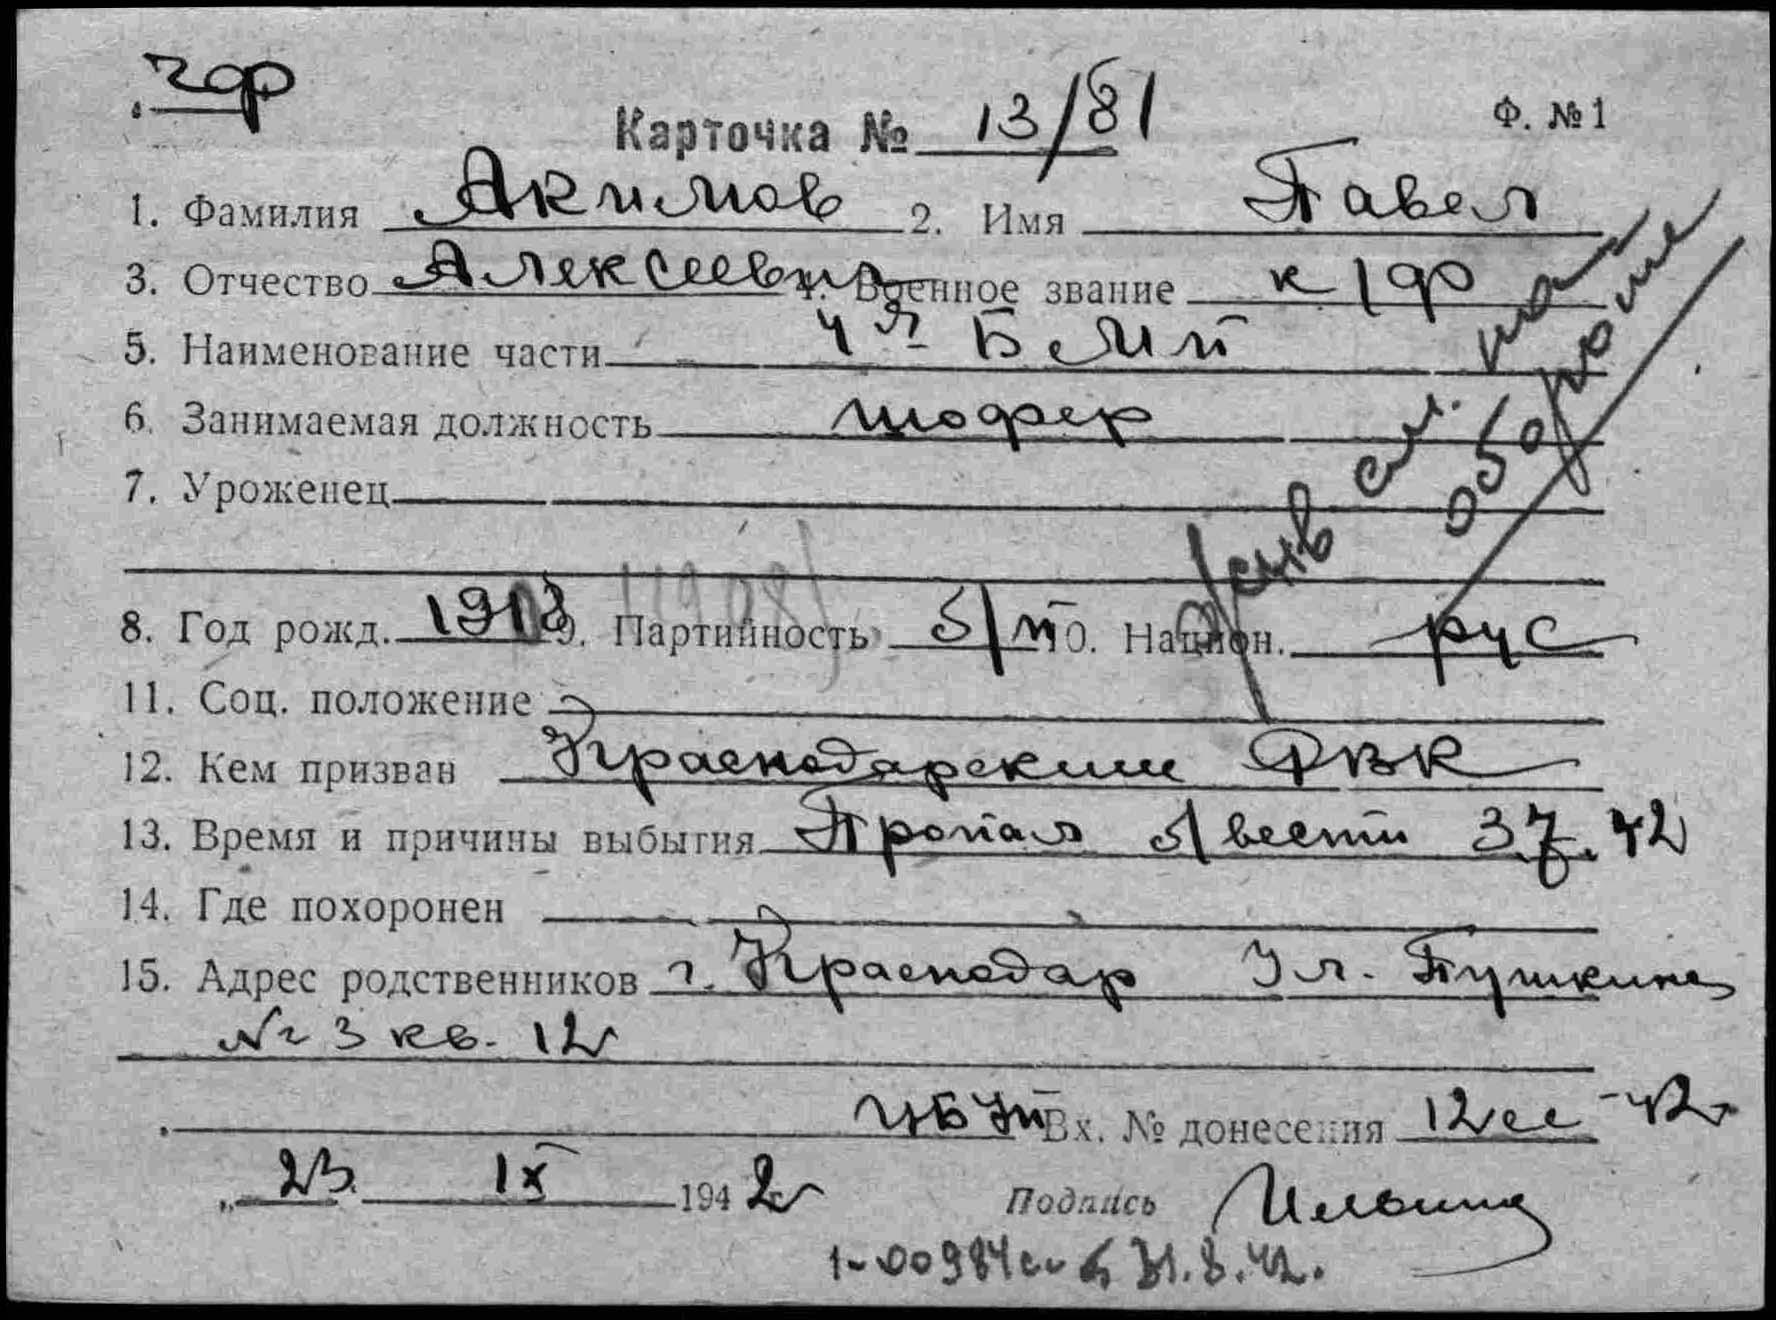 чф
Карточка № 13/81 Ф. №1
1. Фамилия Акимов 2. Имя Павел
3. Отчество Алексеевич 4. Военное звание к/ф
5. Наименование части 4я БМП
6. Занимаемая должность шофер
см. на обороте
7. Уроженец
8. Год рожд. 1913 (1908) 9. Партийность б/п 10. Национ. рус
11. Соц. положение
12. Кем призван Краснодарским РВК
13. Время и причины выбытия Пропал б/вести 3.7.42
14. Где похоронен
15. Адрес родственников г. Краснодар Ул. Пушкина
№ 3 кв. 12
Вх. № донесения 12сс-42
23 IX 1942 Подпись Ильина
31.8.42.